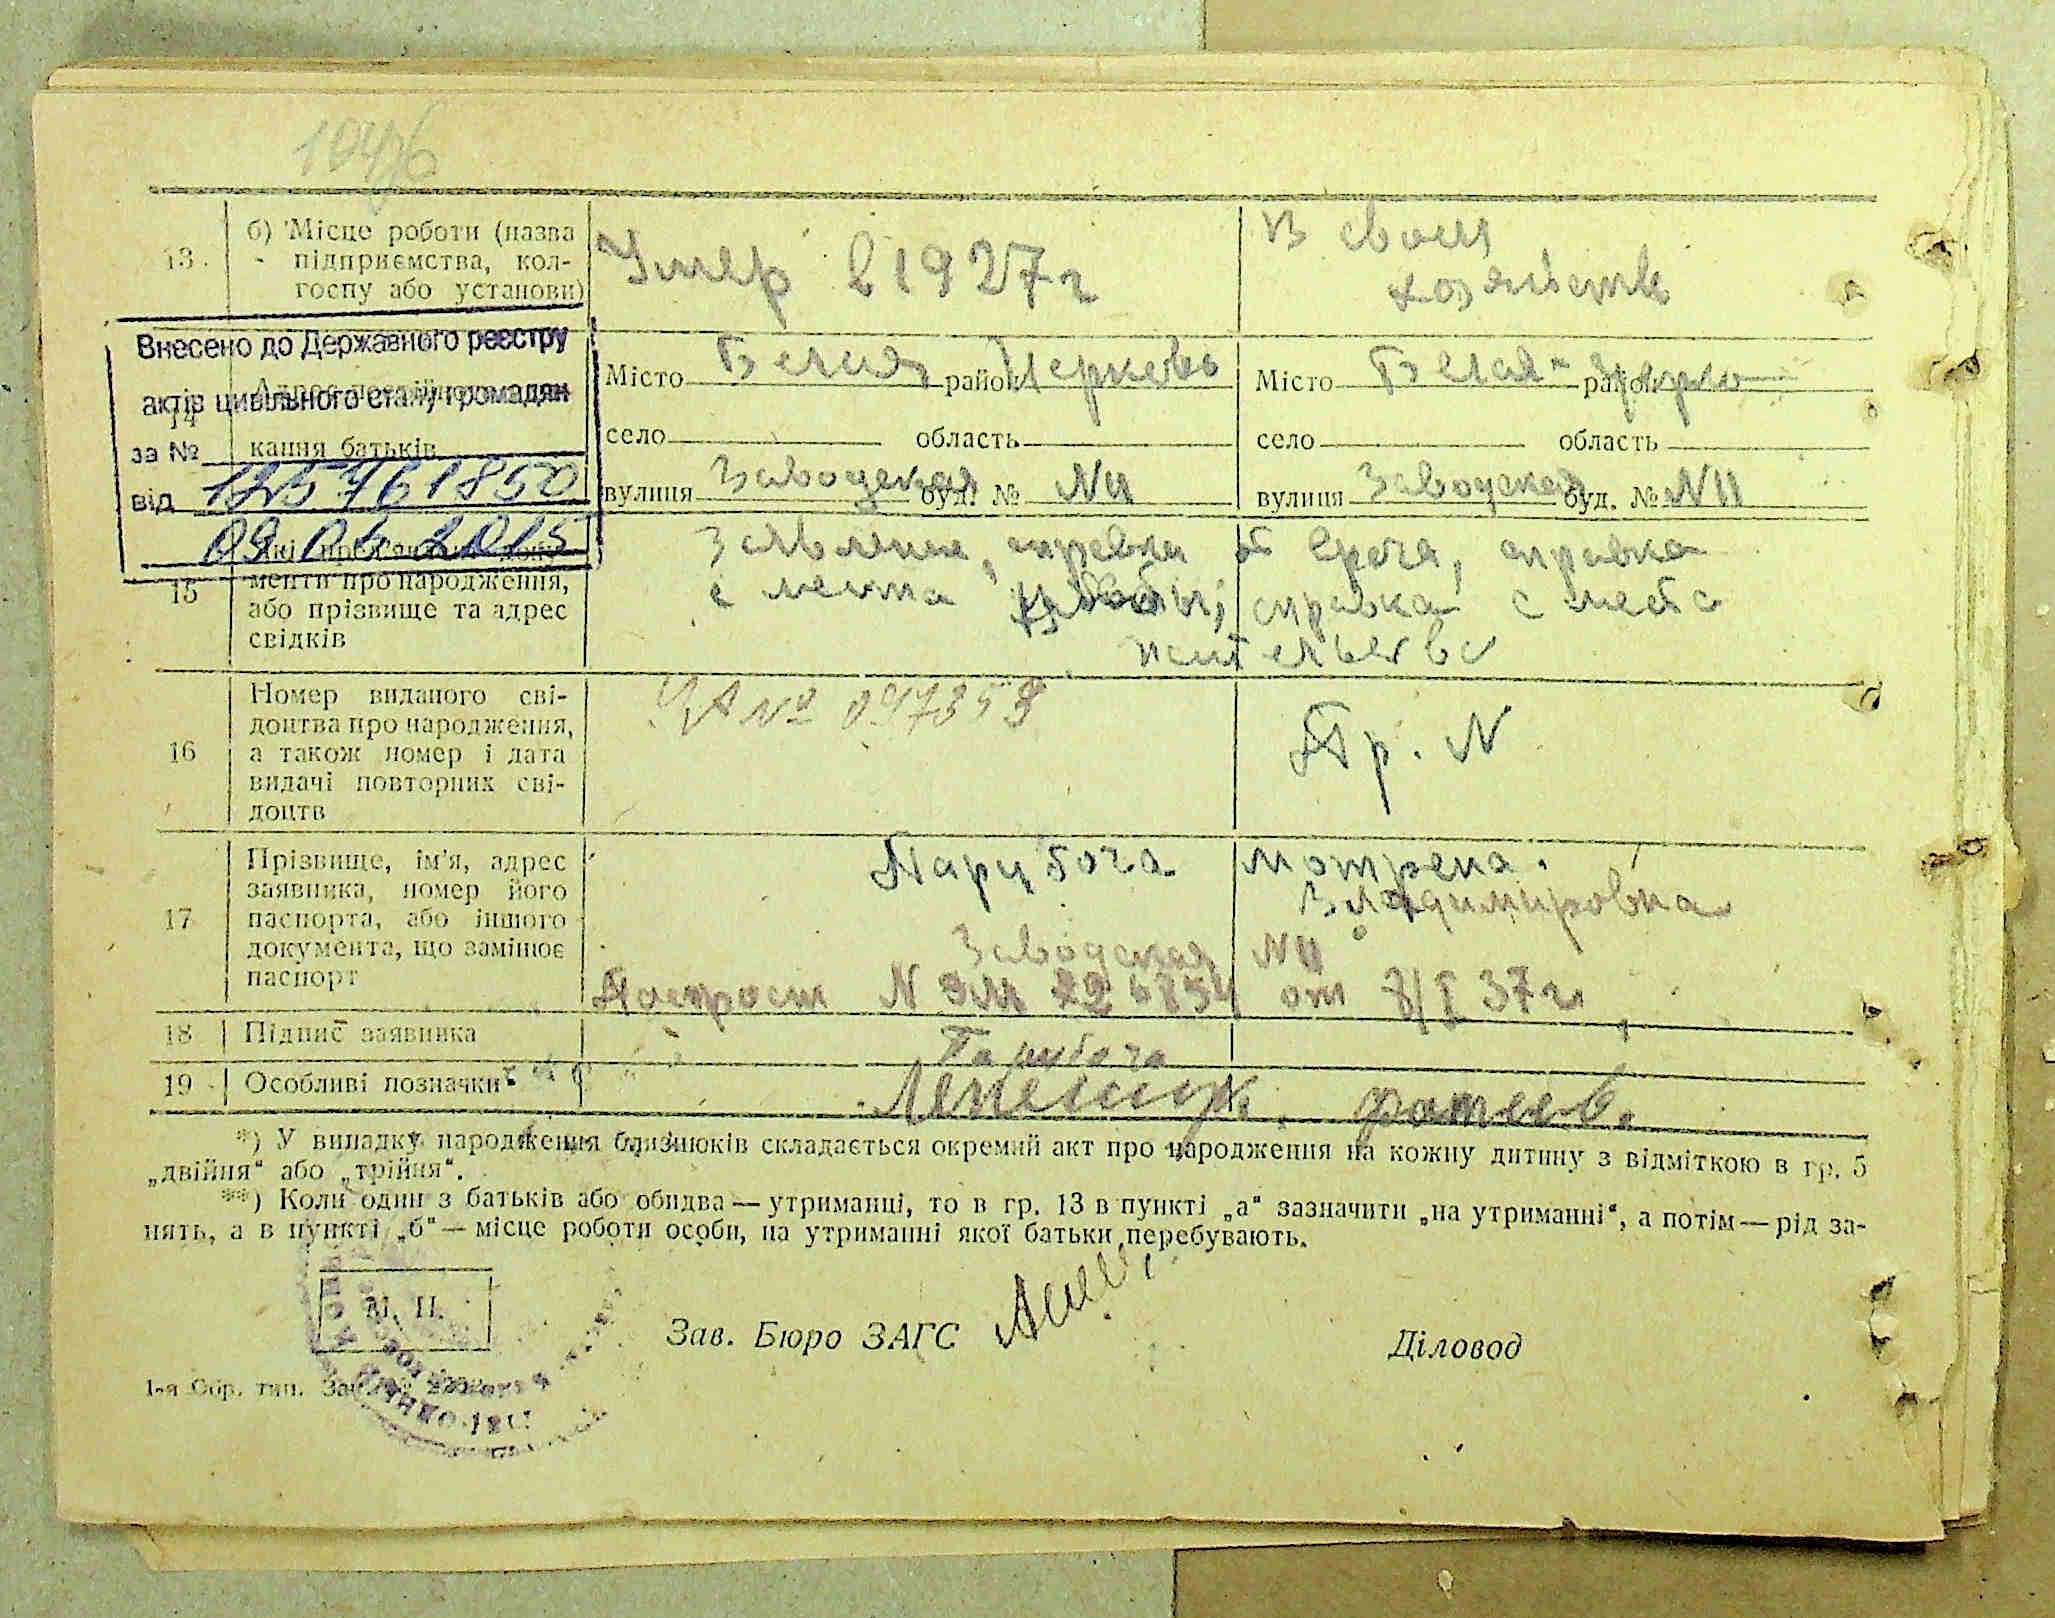 13.
б) Місце роботи (назва
підприємства, кол-
госпу або установи)
Умер в 1927 г
В своем
хозяйстве
Внесено до Державного реєстру
актів цивільного стану громадян
за №
1257761850
від
09.04.2015
14
кання батьків
Місто Белая район Церковь
село область
вулиця Заводская буд. № N11
Місто Белая- район Церко
село область
вулиця Заводская буд. № N11
15
менти про народження,
або прізвище та адрес
свідків
справка от врача, справка
с места работы, справка с места
жительства
16
Номер виданого сві-
доцтва про народження,
а також номер і дата
видачі повторних сві-
доцтв
№ 097353
Пр. N
17
Прізвище, ім'я, адрес
заявника, номер його
паспорта, або іншого
документа, що замінює
паспорт
Парубоча Мотрена
Владимировна
Заводская N11
Паспорт N от 37 г.
18 Підпис заявника
Парубоча
19 Особливі позначки
*) У випадку народження близнюків складається окремий акт про народження на кожну дитину з відміткою в гр. 5
„двійня“ або „трійня“.
**) Коли один з батьків або обидва — утриманці, то в гр. 13 в пункті „а“ зазначити „на утриманні“, а потім — рід за-
нять, а в пункті „б“ — місце роботи особи, на утриманні якої батьки перебувають.
М. П.
Зав. Бюро ЗАГС
Діловод
1-я Обр. тип.